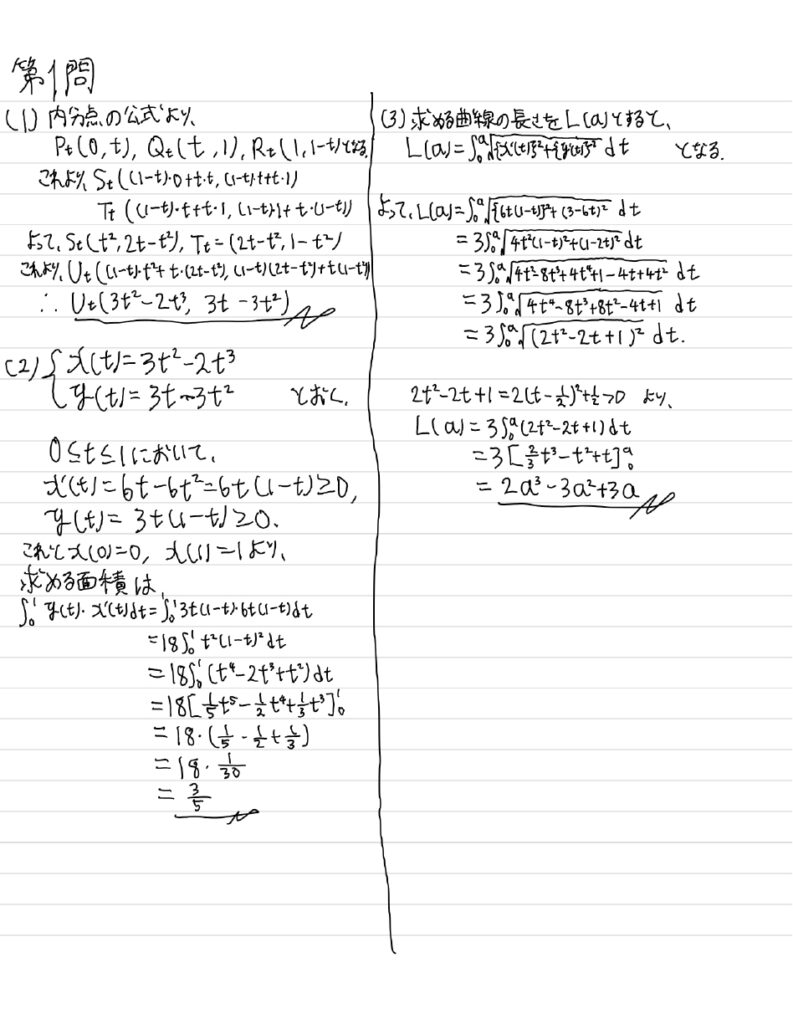 第1問
(1) 内分点の公式より、
Pt(0, t), Qt(t, 1), Rt(1, 1-t)となる.
これより、St((1-t)・0+t・t, (1-t)t+t・1)
Tt((1-t)・t+t・1, (1-t)・1+t・(1-t))
よって、St(t², 2t-t²), Tt=(2t-t², 1-t²)
これより、Ut((1-t)t²+t・(2t-t²), (1-t)(2t-t²)+t(1-t²))
∴ Ut(3t²-2t³, 3t-3t²)
(2) { x(t)=3t²-2t³
y(t)=3t-3t² とおく.
0≤t≤1において、
x'(t)=6t-6t²=6t(1-t)≥0,
y(t)=3t(1-t)≥0.
これと x(0)=0, x(1)=1より、
求める面積は、
∫₀¹ y(t)・x'(t)dt=∫₀¹3t(1-t)・6t(1-t)dt
=18∫₀¹ t²(1-t)²dt
=18∫₀¹(t⁴-2t³+t²)dt
=18[1/5t⁵-1/2t⁴+1/3t³]₀¹
=18・(1/5-1/2+1/3)
=18・1/30
=3/5
(3) 求める曲線の長さをL(a)とすると、
L(a)=∫₀ᵃ√({x'(t)}²+{y'(t)}²) dt となる.
よって、L(a)=∫₀ᵃ√({6t(1-t)}²+(3-6t)²) dt
=3∫₀ᵃ√(4t²(1-t)²+(1-2t)²)dt
=3∫₀ᵃ√(4t²-8t³+4t⁴+1-4t+4t²) dt
=3∫₀ᵃ√(4t⁴-8t³+8t²-4t+1) dt
=3∫₀ᵃ√((2t²-2t+1)²) dt.
2t²-2t+1=2(t-1/2)²+1/2>0 より、
L(a)=3∫₀ᵃ(2t²-2t+1)dt
=3[2/3t³-t²+t]₀ᵃ
=2a³-3a²+3a